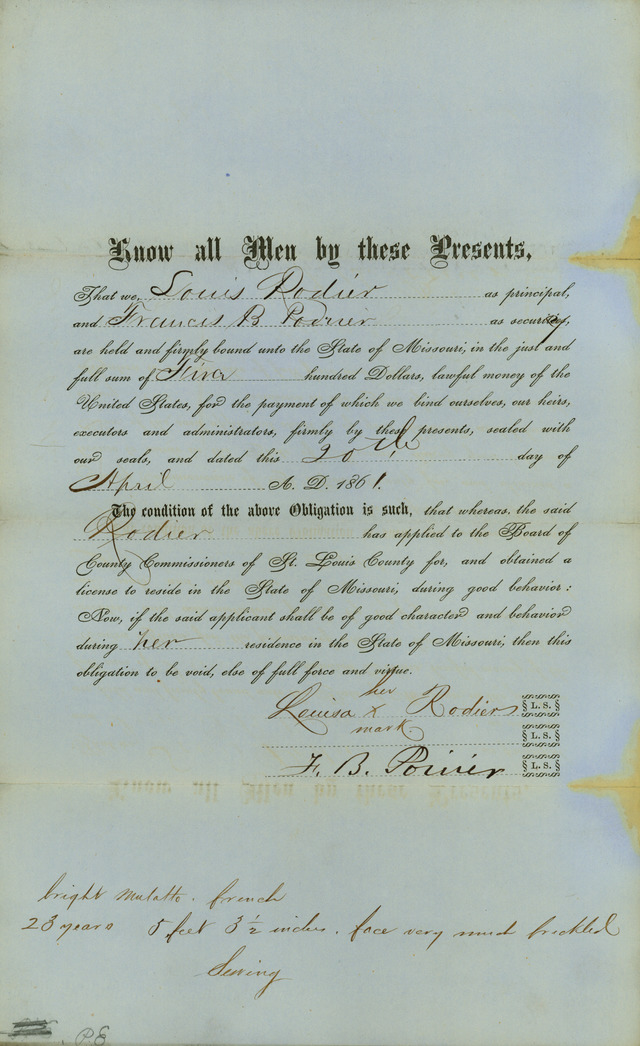 Know all Men by these Presents,
That we, Louis Rodier as principal,
and Francis B Poirier as security,
are held and firmly bound unto the State of Missouri, in the just and
full sum of Five hundred Dollars, lawful money of the
United States, for the payment of which we bind ourselves, our heirs,
executors and administrators, firmly by these presents, sealed with
our seals, and dated this 20th day of
April A. D. 1861.
The condition of the above Obligation is such, that whereas, the said
Rodier has applied to the Board of
County Commissioners of St. Louis County for, and obtained a
license to reside in the State of Missouri, during good behavior:
Now, if the said applicant shall be of good character and behavior
during her residence in the State of Missouri, then this
obligation to be void, else of full force and virtue.
her
Louisa x Rodier L. S.
mark
L. S.
F. B. Poirier L. S.
bright mulatto. french
23 years 5 feet 3 1/2 inches. face very much freckled
Sewing
P.E